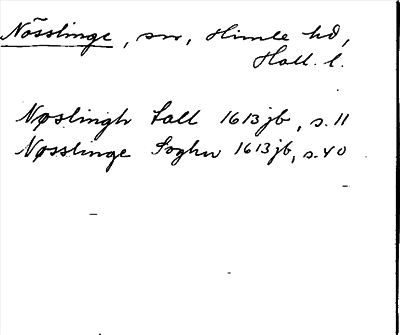 Nösslinge, sn, Himle hd,
Hall. l.
Nøslingh Sall 1613 jb, s. 11
Nøsslinge Soghn 1613 jb, s. 40